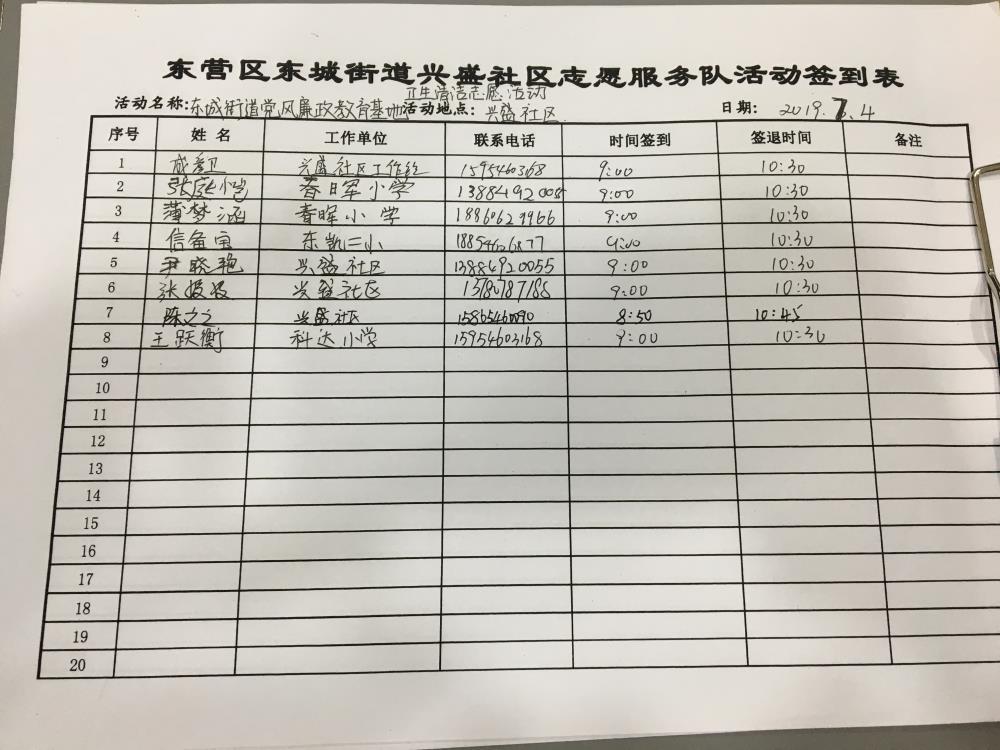 东营区东城街道兴盛社区志愿服务队活动签到表
卫生清洁志愿活动
活动名称:东城街道党风廉政教育基地 活动地点: 兴盛社区 日期: 2019.7.4
序号 姓名 工作单位 联系电话 时间签到 签退时间 备注
1 成爱卫 兴盛社区工作站 15954603168 9:00 10:30
2 张 春晖小学 13884920055 9:00 10:30
3 薄梦涵 春晖小学 18860629966 9:00 10:30
4 信鱼宝 东凯二小 18854606877 9:00 10:30
5 尹晓艳 兴盛社区 13884920055 9:00 10:30
6 张 兴盛社区 13780787188 9:00 10:30
7 陈之之 兴盛社区 15865460090 8:50 10:45
8 王跃衡 科达小学 15954603168 9:00 10:30
9
10
11
12
13
14
15
16
17
18
19
20